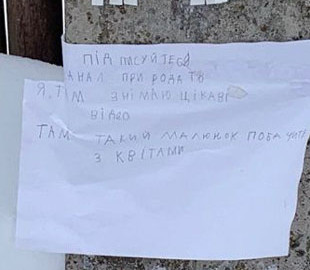 ПІДПИСУЙТЕСЯ
АНАЛ ПРИРОДА ТВ
Я, ТІМ ЗНІМАЮ ЦІКАВІ
ВІДЕО
ТАМ ТАКИЙ МАЛЮНОК ПОБАЧИТЕ
З КВІТАМИ